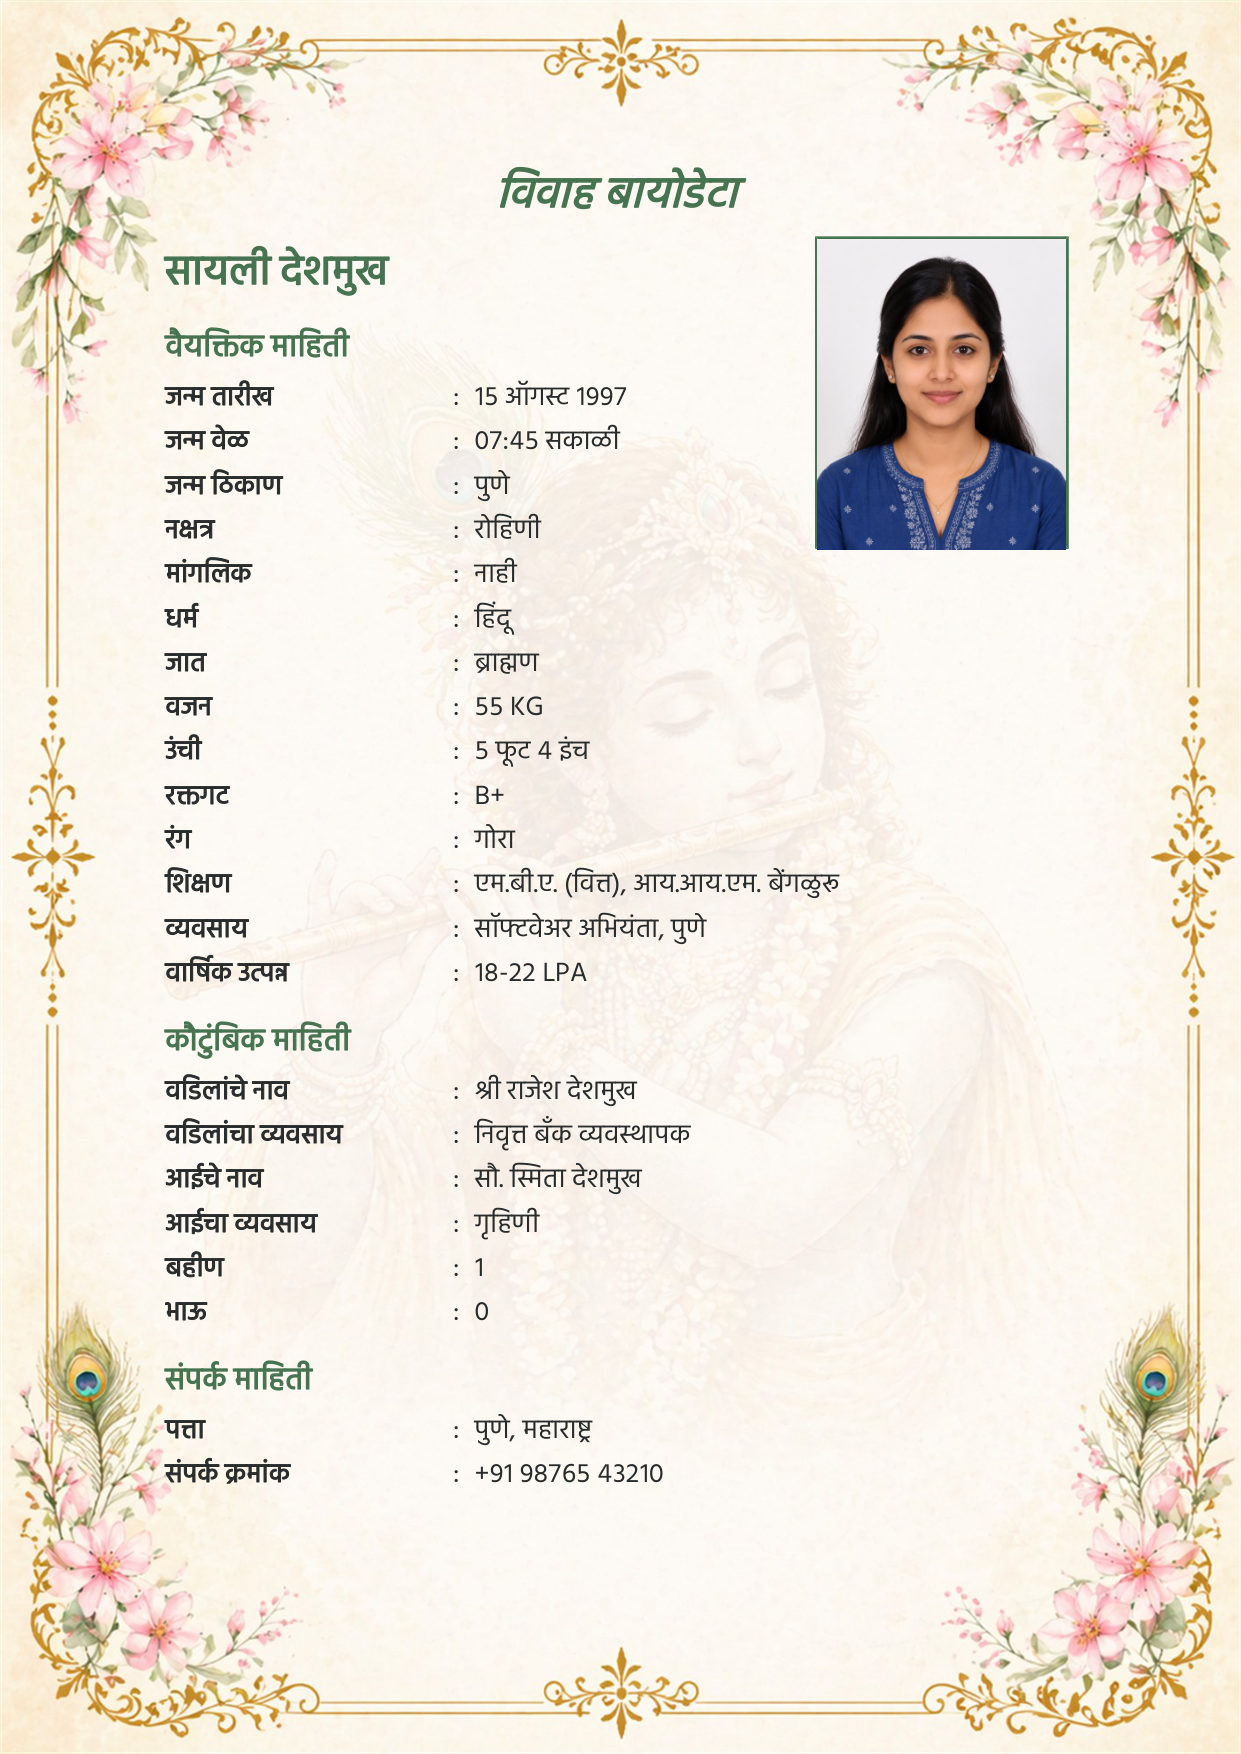 विवाह बायोडेटा
सायली देशमुख
वैयक्तिक माहिती
जन्म तारीख : 15 ऑगस्ट 1997
जन्म वेळ : 07:45 सकाळी
जन्म ठिकाण : पुणे
नक्षत्र : रोहिणी
मांगलिक : नाही
धर्म : हिंदू
जात : ब्राह्मण
वजन : 55 KG
उंची : 5 फूट 4 इंच
रक्तगट : B+
रंग : गोरा
शिक्षण : एम.बी.ए. (वित्त), आय.आय.एम. बेंगळुरु
व्यवसाय : सॉफ्टवेअर अभियंता, पुणे
वार्षिक उत्पन्न : 18-22 LPA
कौटुंबिक माहिती
वडिलांचे नाव : श्री राजेश देशमुख
वडिलांचा व्यवसाय : निवृत्त बँक व्यवस्थापक
आईचे नाव : सौ. स्मिता देशमुख
आईचा व्यवसाय : गृहिणी
बहीण : 1
भाऊ : 0
संपर्क माहिती
पत्ता : पुणे, महाराष्ट्र
संपर्क क्रमांक : +91 98765 43210